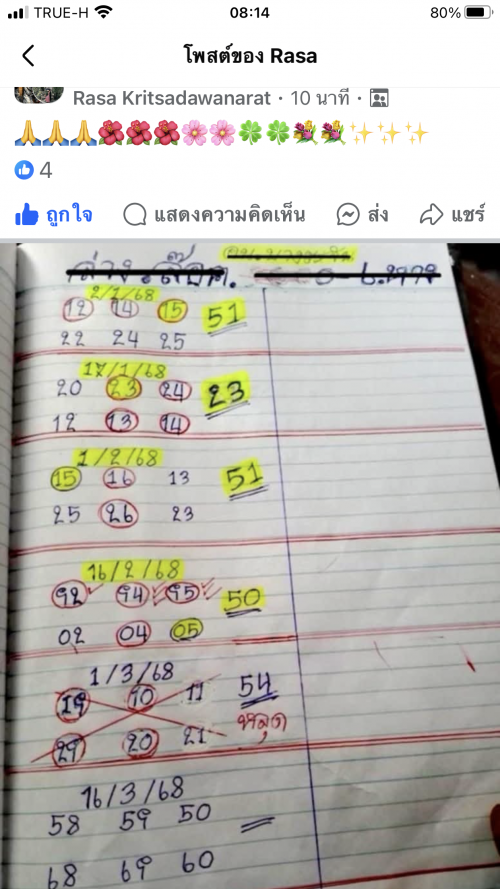 TRUE-H 08:14 80%
โพสต์ของ Rasa
Rasa Kritsadawanarat · 10 นาที ·
🙏🙏🙏🌺🌺🌺🌸🌸🍀🍀💐💐✨✨✨
4
ถูกใจ แสดงความคิดเห็น ส่ง แชร์
2/1/68
12 14 15 51
22 24 25
17/1/68
20 23 24 23
12 13 14
1/2/68
15 16 13 51
25 26 23
16/2/68
92 94 95 50
02 04 05
1/3/68
19 10 11 54
29 20 21 หลุด
16/3/68
58 59 50
68 69 60